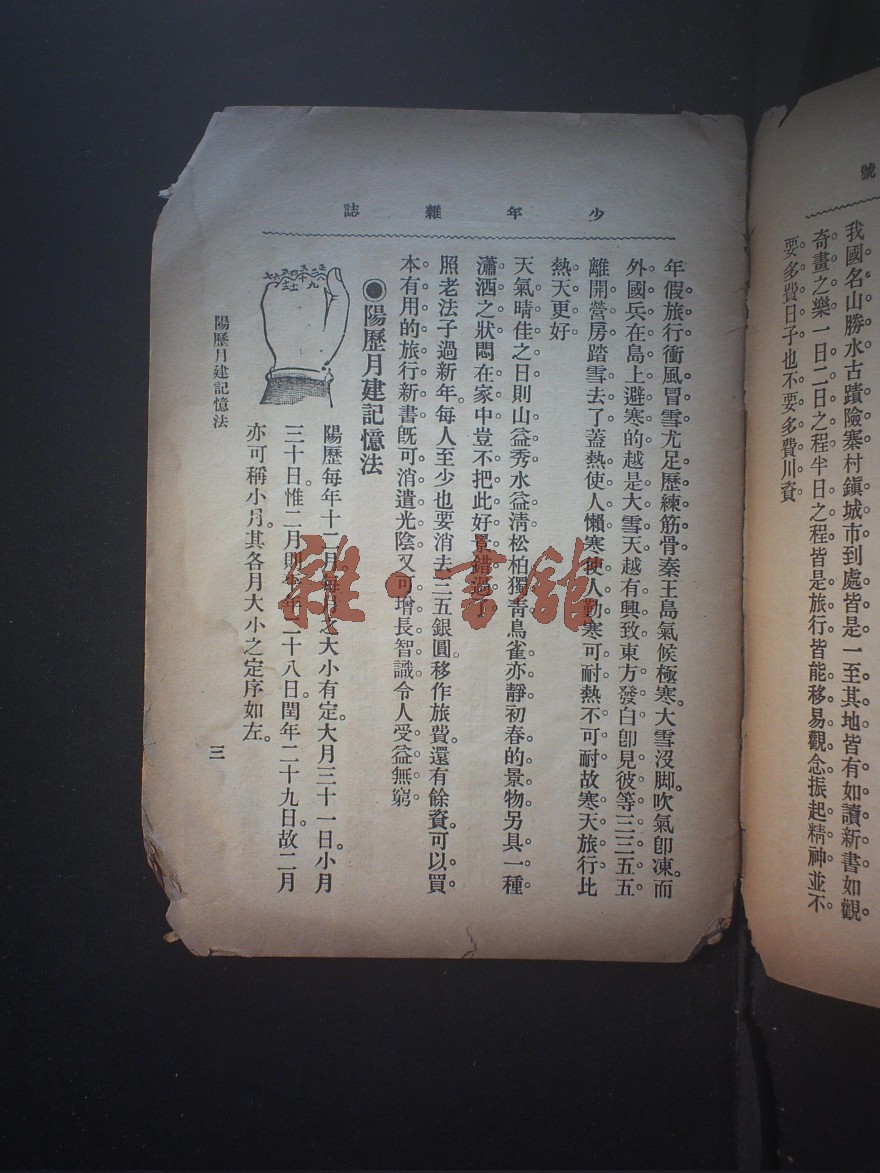 號
我國名山勝水古蹟險寨村鎮城市到處皆是一至其地皆有如讀新書如觀
奇畫之樂一日二日之程半日之程皆是旅行皆能移易觀念振起精神並不
要多費日子也不要多費川資
少年雜誌
年假旅行衝風冒雪尤足歷練筋骨秦王島氣候極寒大雪沒脚吹氣卽凍而
外國兵在島上避寒的越是大雪天越有興致東方發白卽見彼等三三五五
離開營房踏雪去了蓋熱使人懶寒使人勤寒可耐熱不可耐故寒天旅行比
熱天更好
天氣晴佳之日則山益秀水益清松柏獨青鳥雀亦靜初春的景物另具一種
瀟洒之狀悶在家中豈不把此好景錯過了
照老法子過新年。每人至少也要消去三五銀圓。移作旅費。還有餘資。可以買
本有用的旅行新書旣可消遣光陰又可增長智識令人受益無窮
●陽歷月建記憶法
陽歷每年十二月。每月之大小有定。大月三十一日。小月
三十日。惟二月則平年二十八日。閏年二十九日。故二月
亦可稱小月。其各月大小之定序如左。
陽歷月建記憶法
三
雜·書館